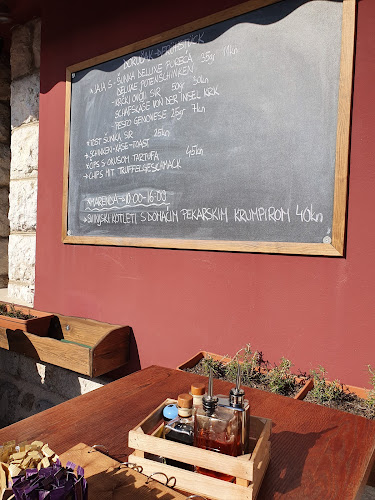 DORUČAK - FRÜHSTÜCK
* JAJA S : ŠUNKA DELUXE PUKEĆA 35gr 11kn
DELUXE PUTENSCHINKEN
- KRČKI OVČJI SIR 50gr 30kn
SCHAFSKÄSE VON DER INSEL KRK
- PESTO GENOVESE 25gr 7kn
* TOST ŠUNKA SIR 25kn
SCHINKEN-KÄSE-TOAST
* ČIPS S OKUSOM TARTUFA 45kn
CHIPS MIT TRÜFFELGESCHMACK
MARENDA - 10:00-16:00
* SVINJSKI KOTLETI S DOMAĆIM PEKARSKIM KRUMPIROM 40kn